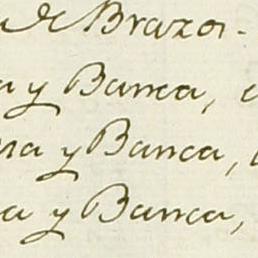 de Brazos.
a y Banca,
sa y Banca,
a y Banca,